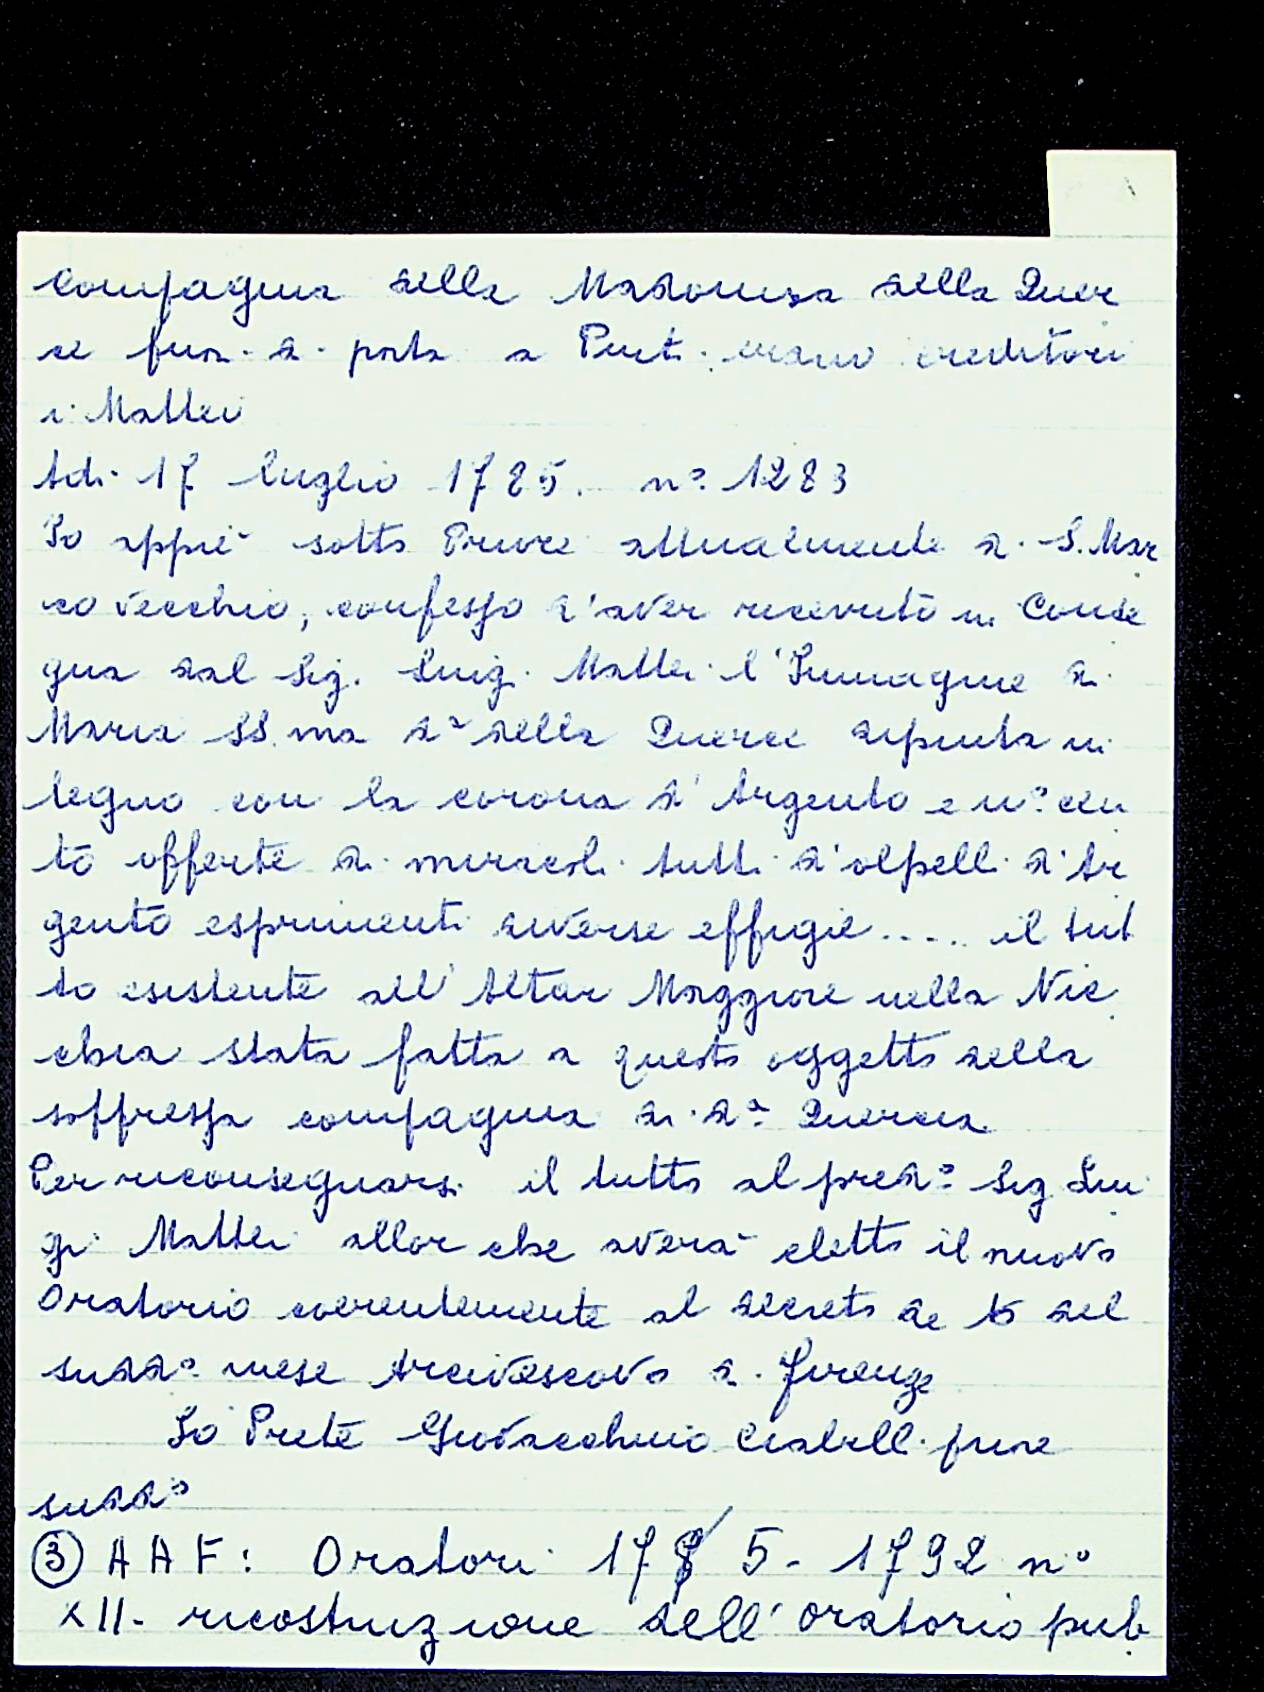 compagnia della Madonna della Quer
ce fuor. di. porta a Pint. erano creditori
i. Mattei
Adi. 17 luglio 1785. n.° 1283
Io appiè sotto Priore attualmente di. S. Mar
co Vecchio, confesso d'aver ricevuto in Conse
gna dal Sig. Luig. Mattei. l'Immagine di.
Maria SS.ma d.ª della Querce dipinta in
legno con la corona d'Argento e n.° cen
to offerte di. miracoli. tutti. d'olpelli. d'Ar
gento esprimenti diverse effigie..... il tut
to esistente all'Altar Maggiore nella Nic
chia stata fatta a questo oggetto della
soppressa compagnia di. d.ª Quercia
Per riconsegnarsi. il tutto al pred.° Sig Lui
gi. Mattei allor che averà eletto il nuovo
Oratorio coerentemente al decreto de 15 del
sudd.° mese Arcivescovo di. Firenze
Io Prete Giovacchino Ciabilli. priore
sudd.°
③ A A F: Oratori 17 5 - 1792 n°
XII - ricostruzione dell'oratorio pub